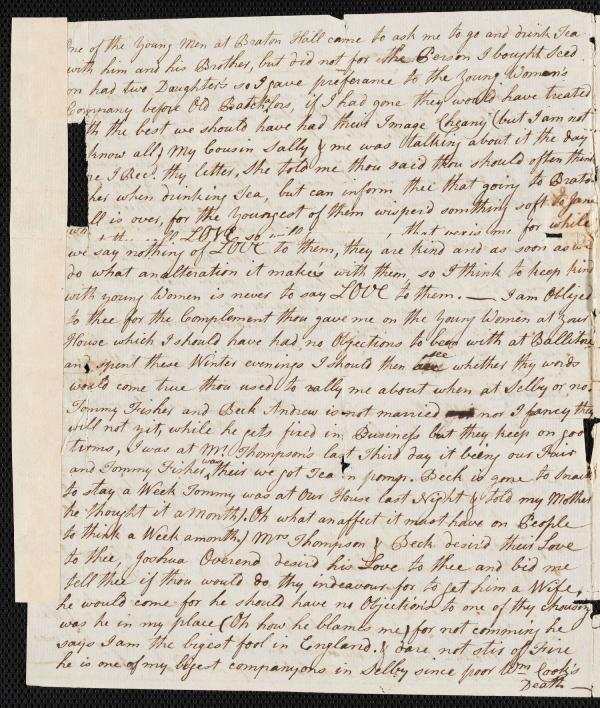 one of the Young Men at Braton Hall came to ask me to go and drink Tea
with him and his Brother, but did not for the Person I bought Seed
on had two Daughter's so I gave preferance to the Young Women's
Company before Old Batchlors, if I had gone they would have treated
with the best we should have had their Image Cheany (but I am not
know all) My Cousin Sally & me was talking about it the day
I Recd. thy letter, She told me thou said thou should often think
her when drinking Tea, but can inform thee that going to Braton
is over, for the Youngest of them wisperd something soft to Jane
LOVE so will that was is me for while
we say nothing of LOVE to them, they are kind and as soon as we
do what an alteration it makes with them, so I think to keep kind
with young Women is never to say LOVE to them. — I am Obliged
to thee for the Complement thou gave me on the Young Women at Your
House which I should have had no Objections to been with at Ballitore
and spent these Winter evenings I should then see whether thy words
would come true thou used to rally me about when at Selby or no,
Tommy Fisher and Beck Andrew is not married nor I fancy they
will not yit, while he gets fixed in Business but they keep on good
tirms, I was at Mr. Thompson's last Third day it being our Fair
and Tommy Fisher was their we got Tea in pomp. Beck is gone to
to stay a Week Tommy was at Our House last Night & told my Mother
he thought it a month). Oh what an affect it must have on People
to think a Week a month) Mrs Thompson & Beck desir'd their Love
to thee, Joshua Overend desir'd his Love to thee and bid me
tell thee if thou would do thy indeavour for to get him a Wife,
he would come for he should have no Objections to one of thy chousing
was he in my place (Oh how he blames me) for not comming he
says I am the bigest fool in England. & dare not stir of Fire
he is one of my bigest companyons in Selby since poor Wm Cook's
Death —